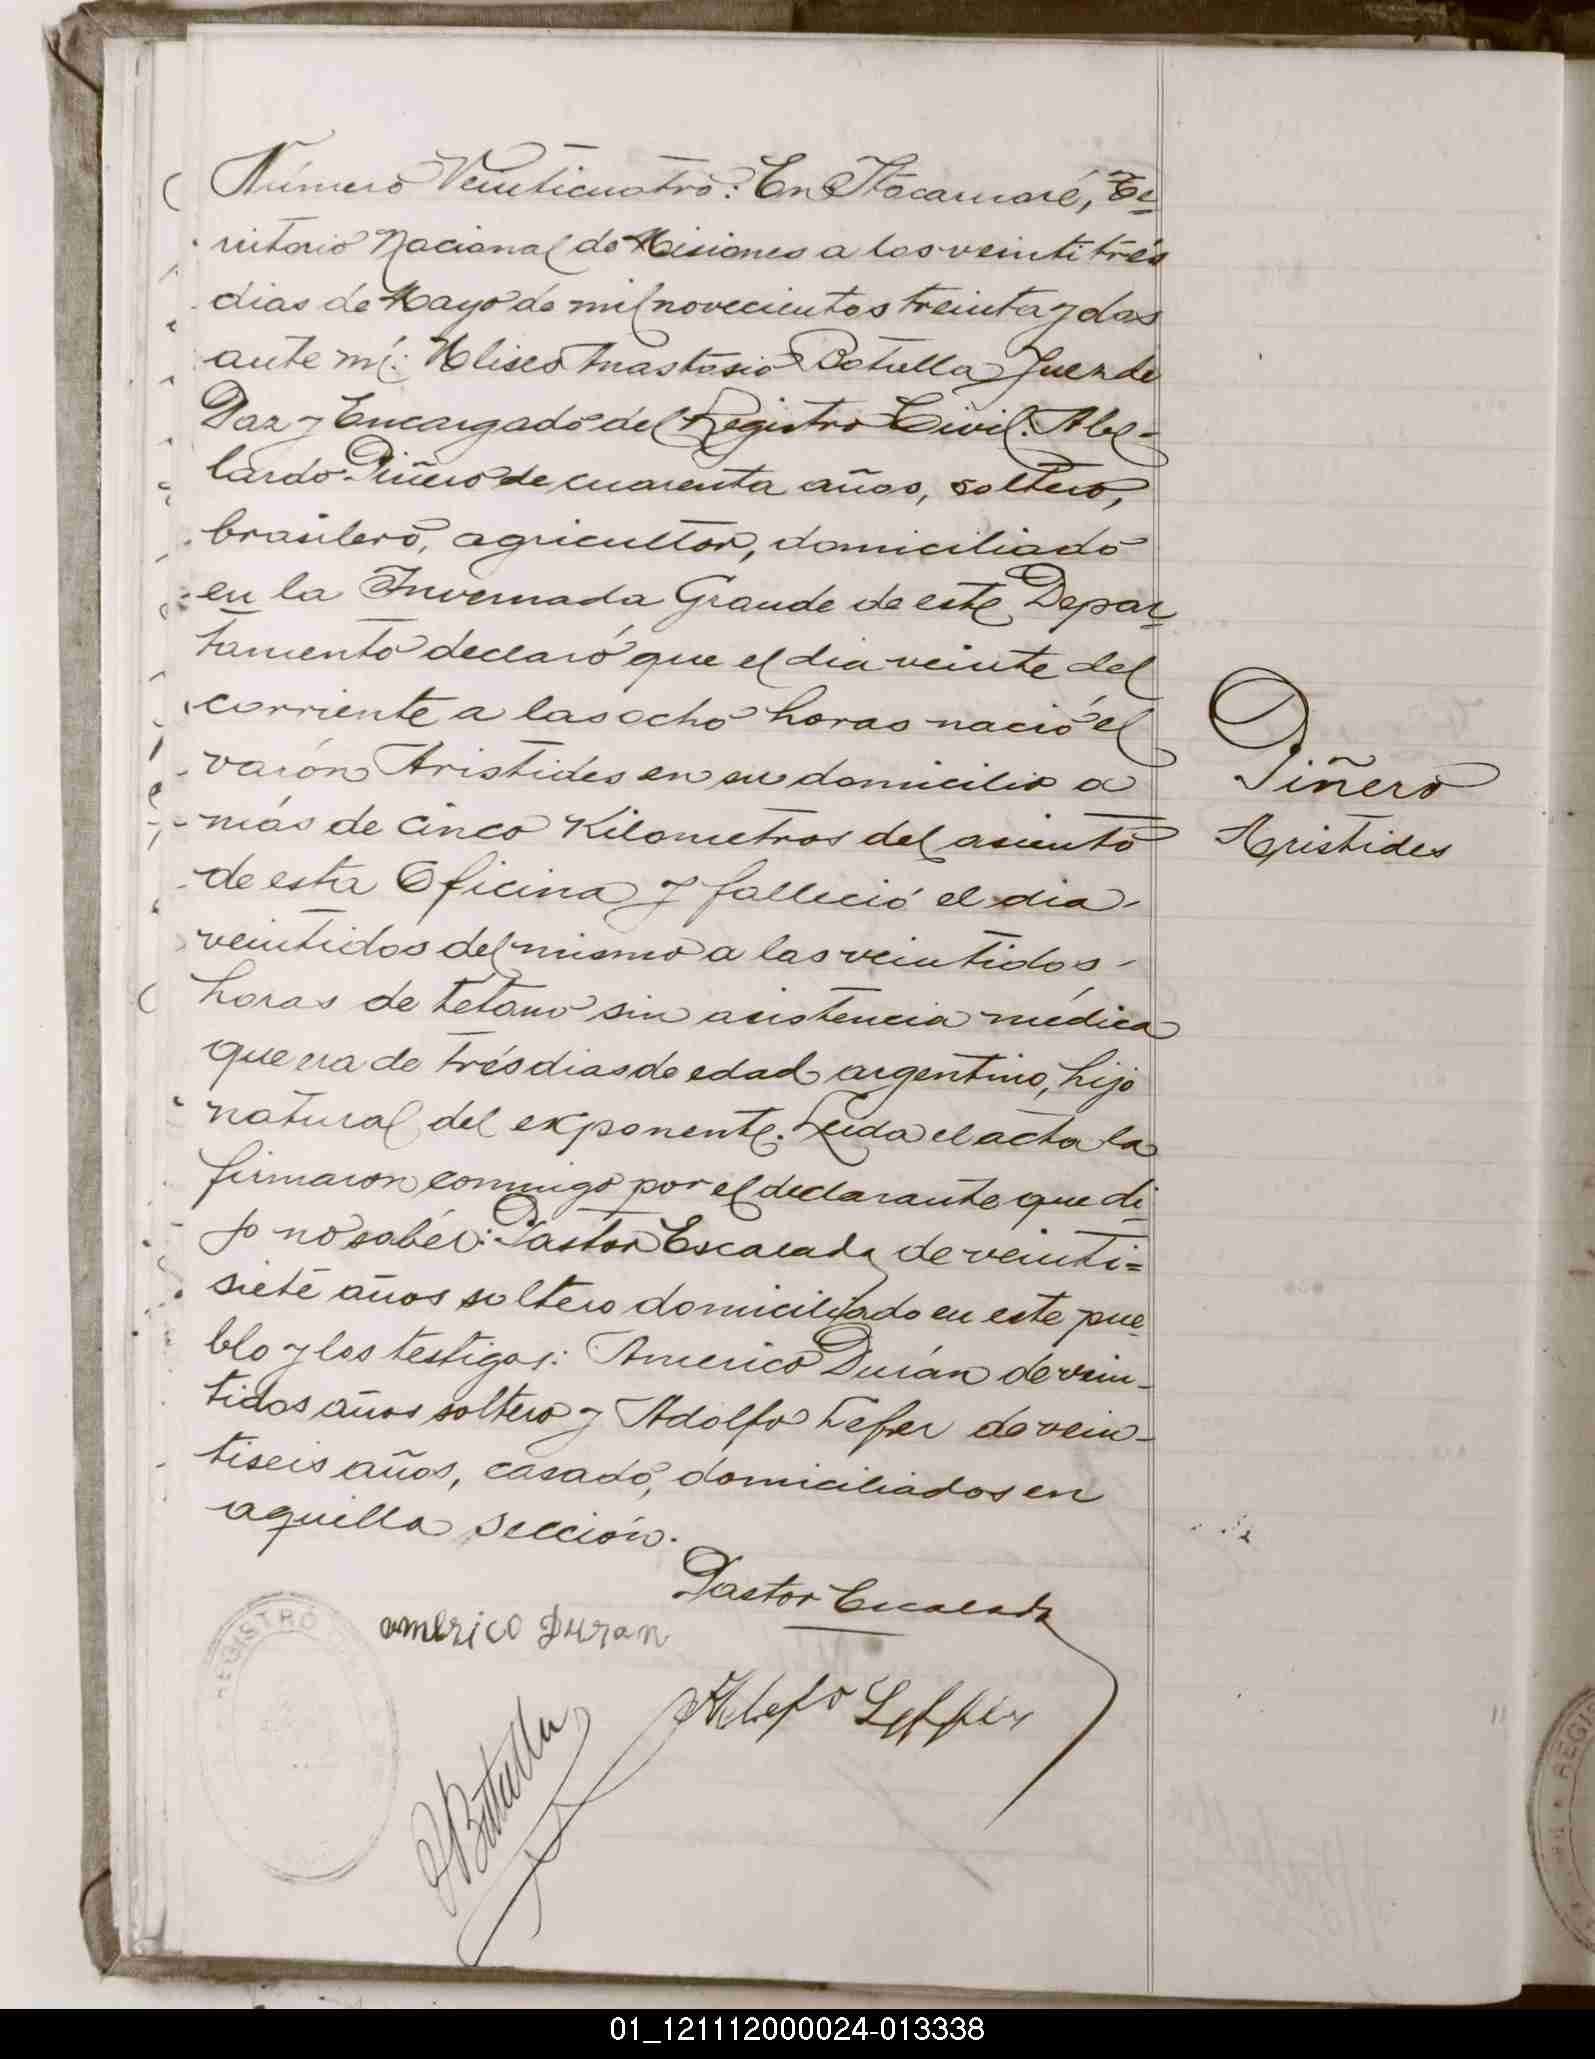 Número Veinticuatro: En Itacaruaré, Te-
rritorio Nacional de Misiones a los veintitrés
dias de Mayo de mil novecientos treinta y dos
ante mí: Eliseo Anastasio Batulla Juez de
Paz y Encargado del Registro Civil. Abe-
lardo Piñero de cuarenta años, soltero,
brasilero, agricultor, domiciliado
en la Invernada Grande de este Depar-
tamento declaró que el dia veinte del
corriente a las ocho horas nació el
varón Aristides en su domicilio a
más de cinco Kilometros del asiento
de esta Oficina y falleció el dia
veintidos del mismo a las veintidos
horas de tetano sin asistencia médica
que era de trés dias de edad argentino, hijo
natural del exponente. Leida el acta la
firmaron conmigo por el declarante que di-
jo no saber: Pastor Escalada de veinti=
siete años soltero domiciliado en este pue-
blo y los testigos: Americo Durán de vein-
tidos años soltero y Adolfo Lefler de vein-
tiseis años, casado, domiciliados en
aquella sección.
Piñero
Aristides
Pastor Escalada
americo Duran
Adolfo Leffler
Batulla
REGISTRO
REGIS
01_121112000024-013338